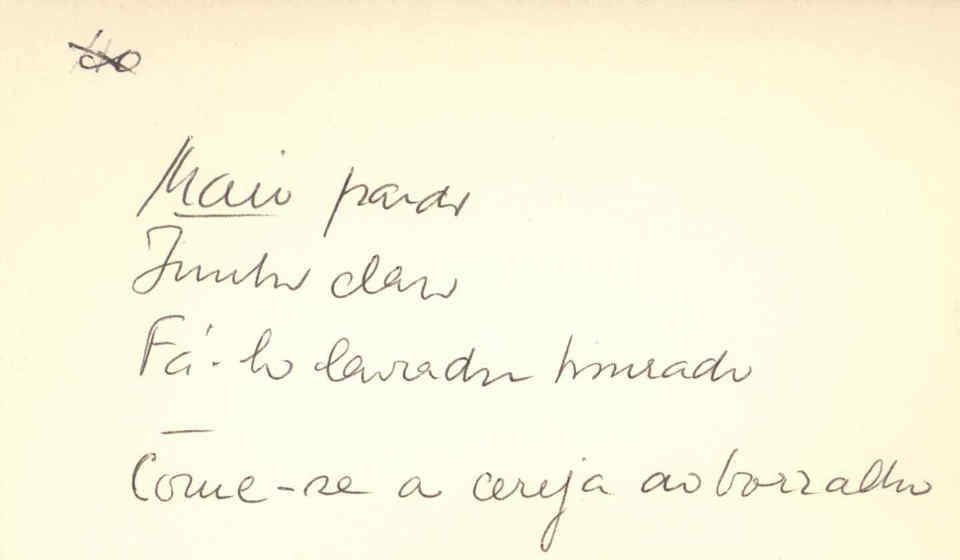 Maio pardo
Junho claro
Fá-lo lavrador honrado
—
Come-se a cereja ao borralho